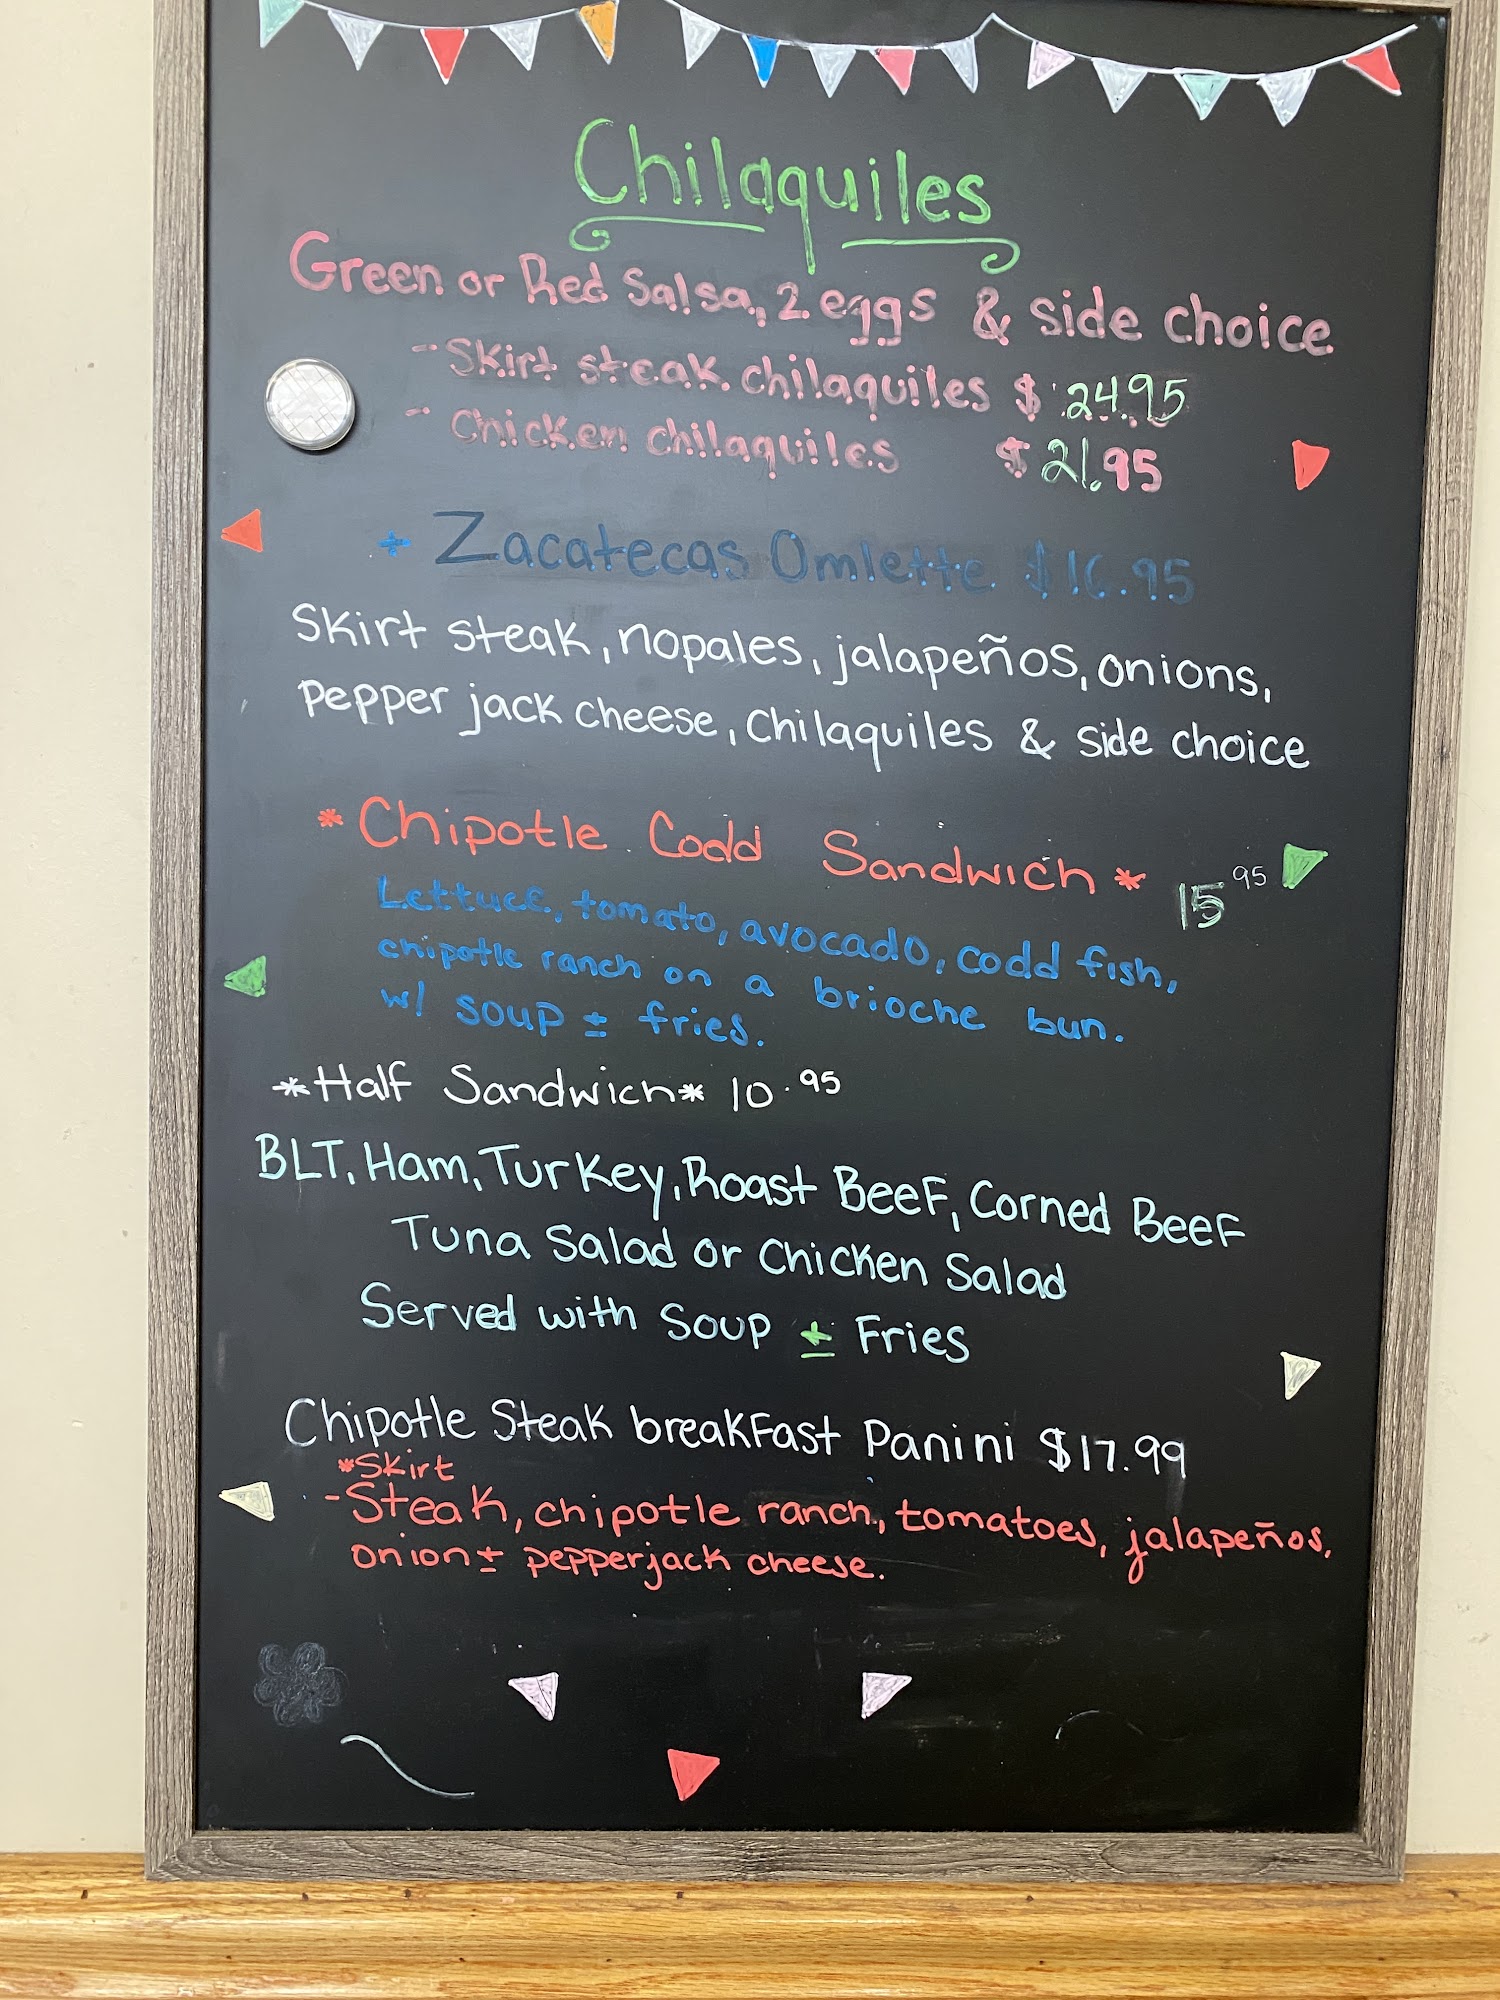 Chilaquiles
Green or Red Salsa, 2 eggs & side choice
- Skirt steak chilaquiles $ 24.95
- Chicken chilaquiles $ 21.95
+ Zacatecas Omlette $16.95
Skirt steak, nopales, jalapeños, onions,
pepper jack cheese, Chilaquiles & side choice
* Chipotle Codd Sandwich * 15 95
Lettuce, tomato, avocado, codd fish,
chipotle ranch on a brioche bun.
w/ soup ± fries.
*Half Sandwich* 10.95
BLT, Ham, Turkey, Roast Beef, Corned Beef
Tuna Salad or Chicken Salad
Served with Soup ± Fries
Chipotle Steak breakfast Panini $17.99
*Skirt
- Steak, chipotle ranch, tomatoes, jalapeños,
onion ± pepperjack cheese.